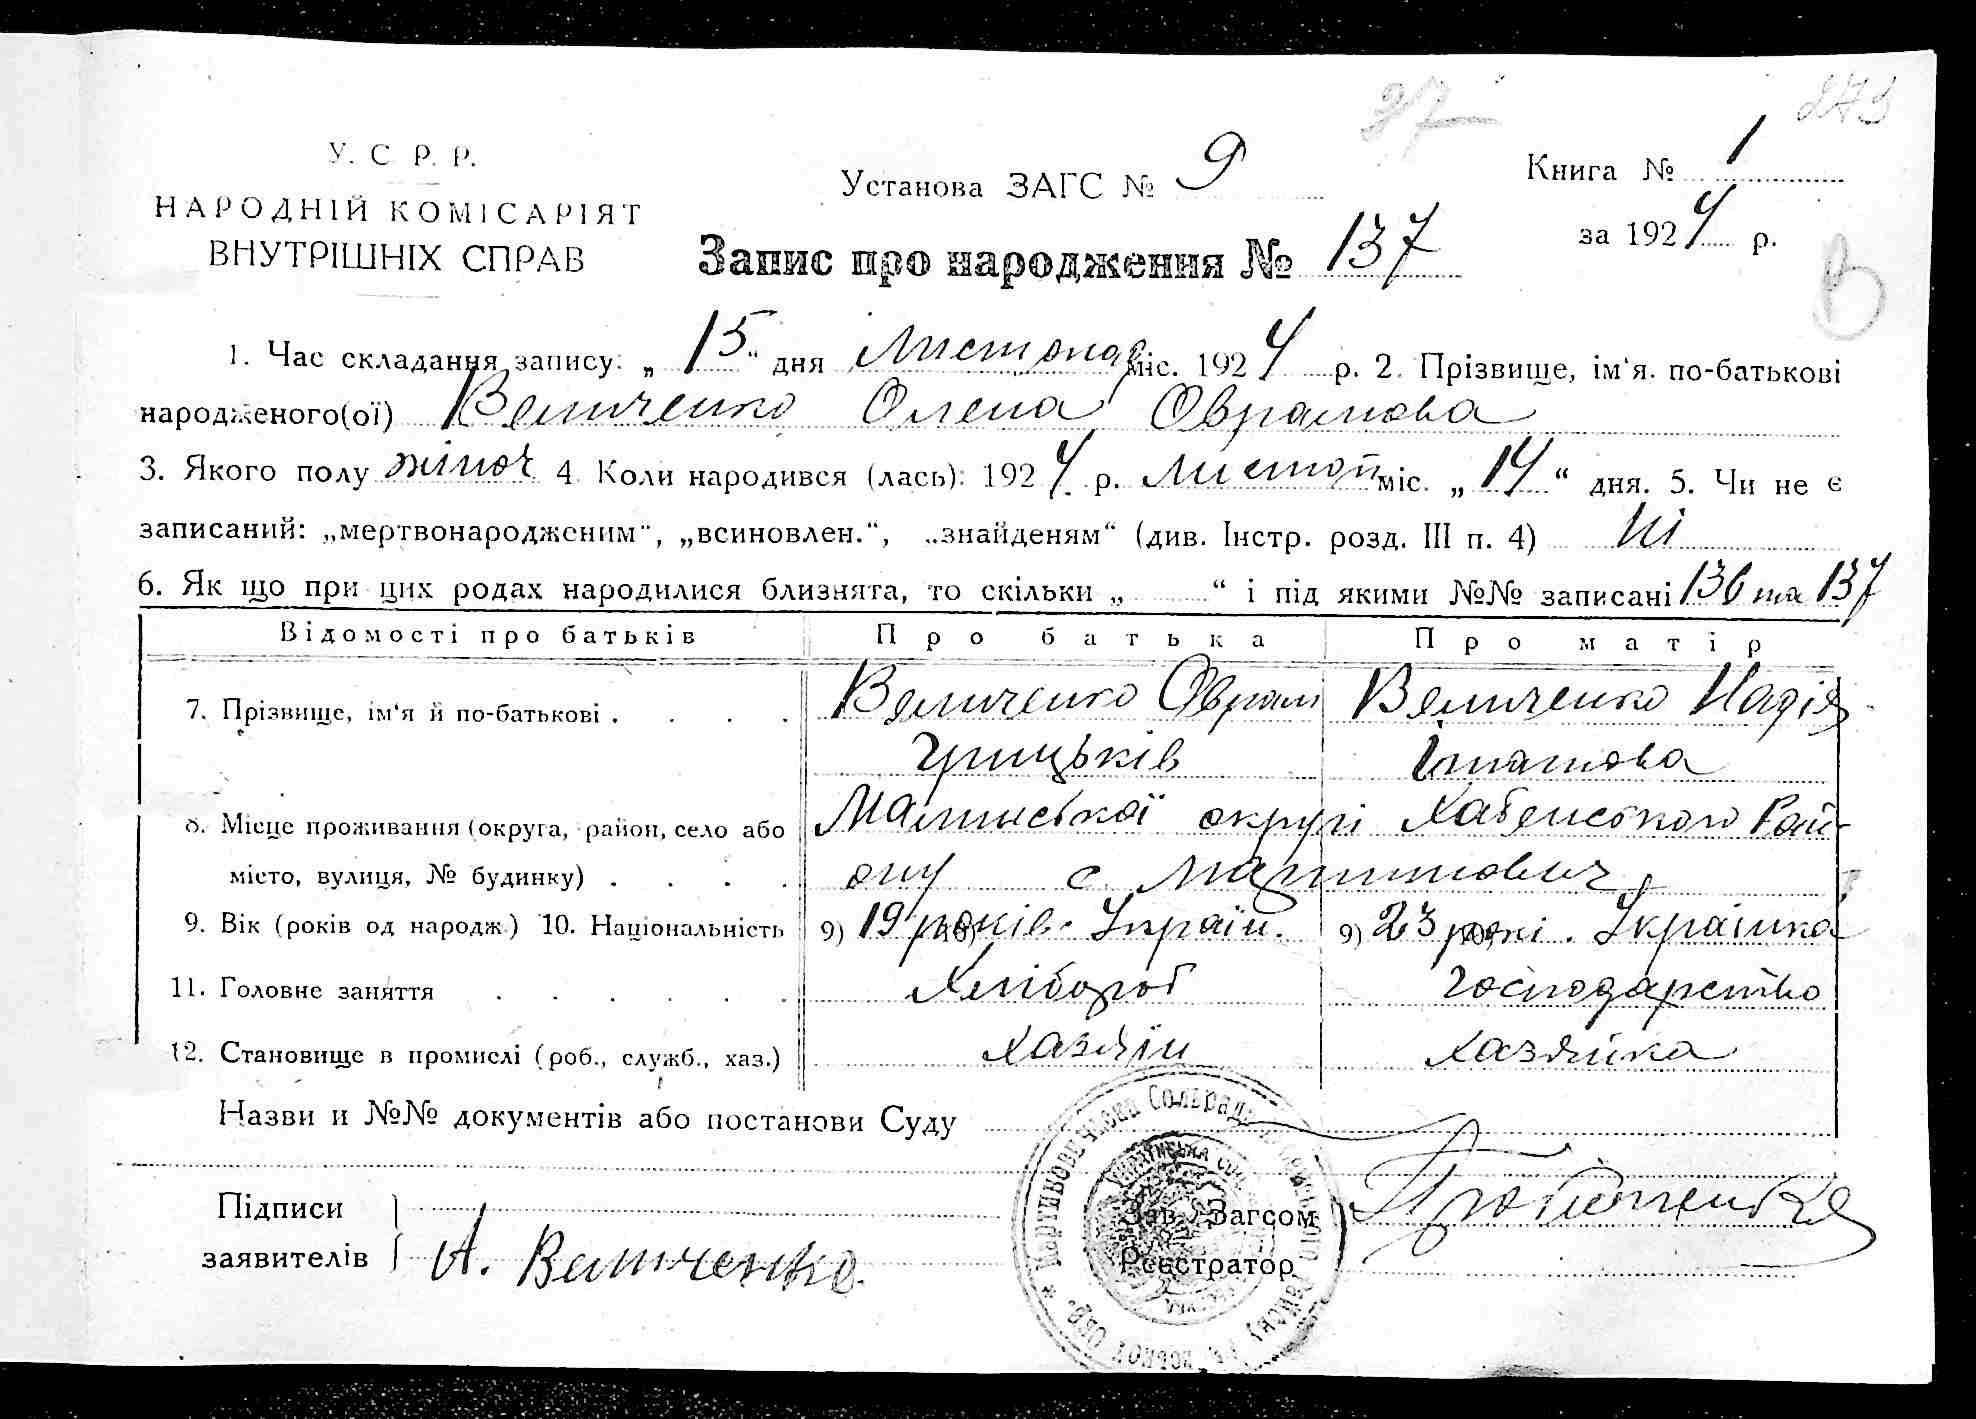 27
273
У. С. Р. Р.
НАРОДНІЙ КОМІСАРІЯТ
ВНУТРІШНІХ СПРАВ
Установа ЗАГС № 9
Книга № 1
за 1924 р.
Запис про народження № 137
В
1. Час складання запису: „ 15 “ дня Листопад міс. 1924 р. 2. Прізвище, ім‘я. по-батькові
народженого(ої) Величенко Олена Оврамова
3. Якого полу жіноч 4. Коли народився (лась): 1924 р. Листоп міс. „ 14 “ дня. 5. Чи не є
записаний: „мертвонародженим“, „всиновлен.“, „знайденям“ (див. Інстр. розд. III п. 4) Ні
6. Як що при цих родах народилися близнята, то скільки „ “ і під якими №№ записані 136 та 137
Відомості про батьків Про батька Про матір
7. Прізвище, ім‘я й по-батькові . . . . Величенко Оврам Величенко Надія
Грицьків Гнатова
8. Місце проживання (округа, район, село або Малинської округи Хабенського Рай-
місто, вулиця, № будинку) . . . . ону с Мартинович
9. Вік (років од народж.) 10. Національність 9) 19 років. 10) Україн. 9) 23 роки. 10) Українка
11. Головне заняття . . . . . . Хлібороб Господарство
12. Становище в промислі (роб., служб., хаз.) Хазяїн Хазяйка
Назви и №№ документів або постанови Суду
Підписи
заявителів А. Величенко
Зав. Загсом
Реєстратор